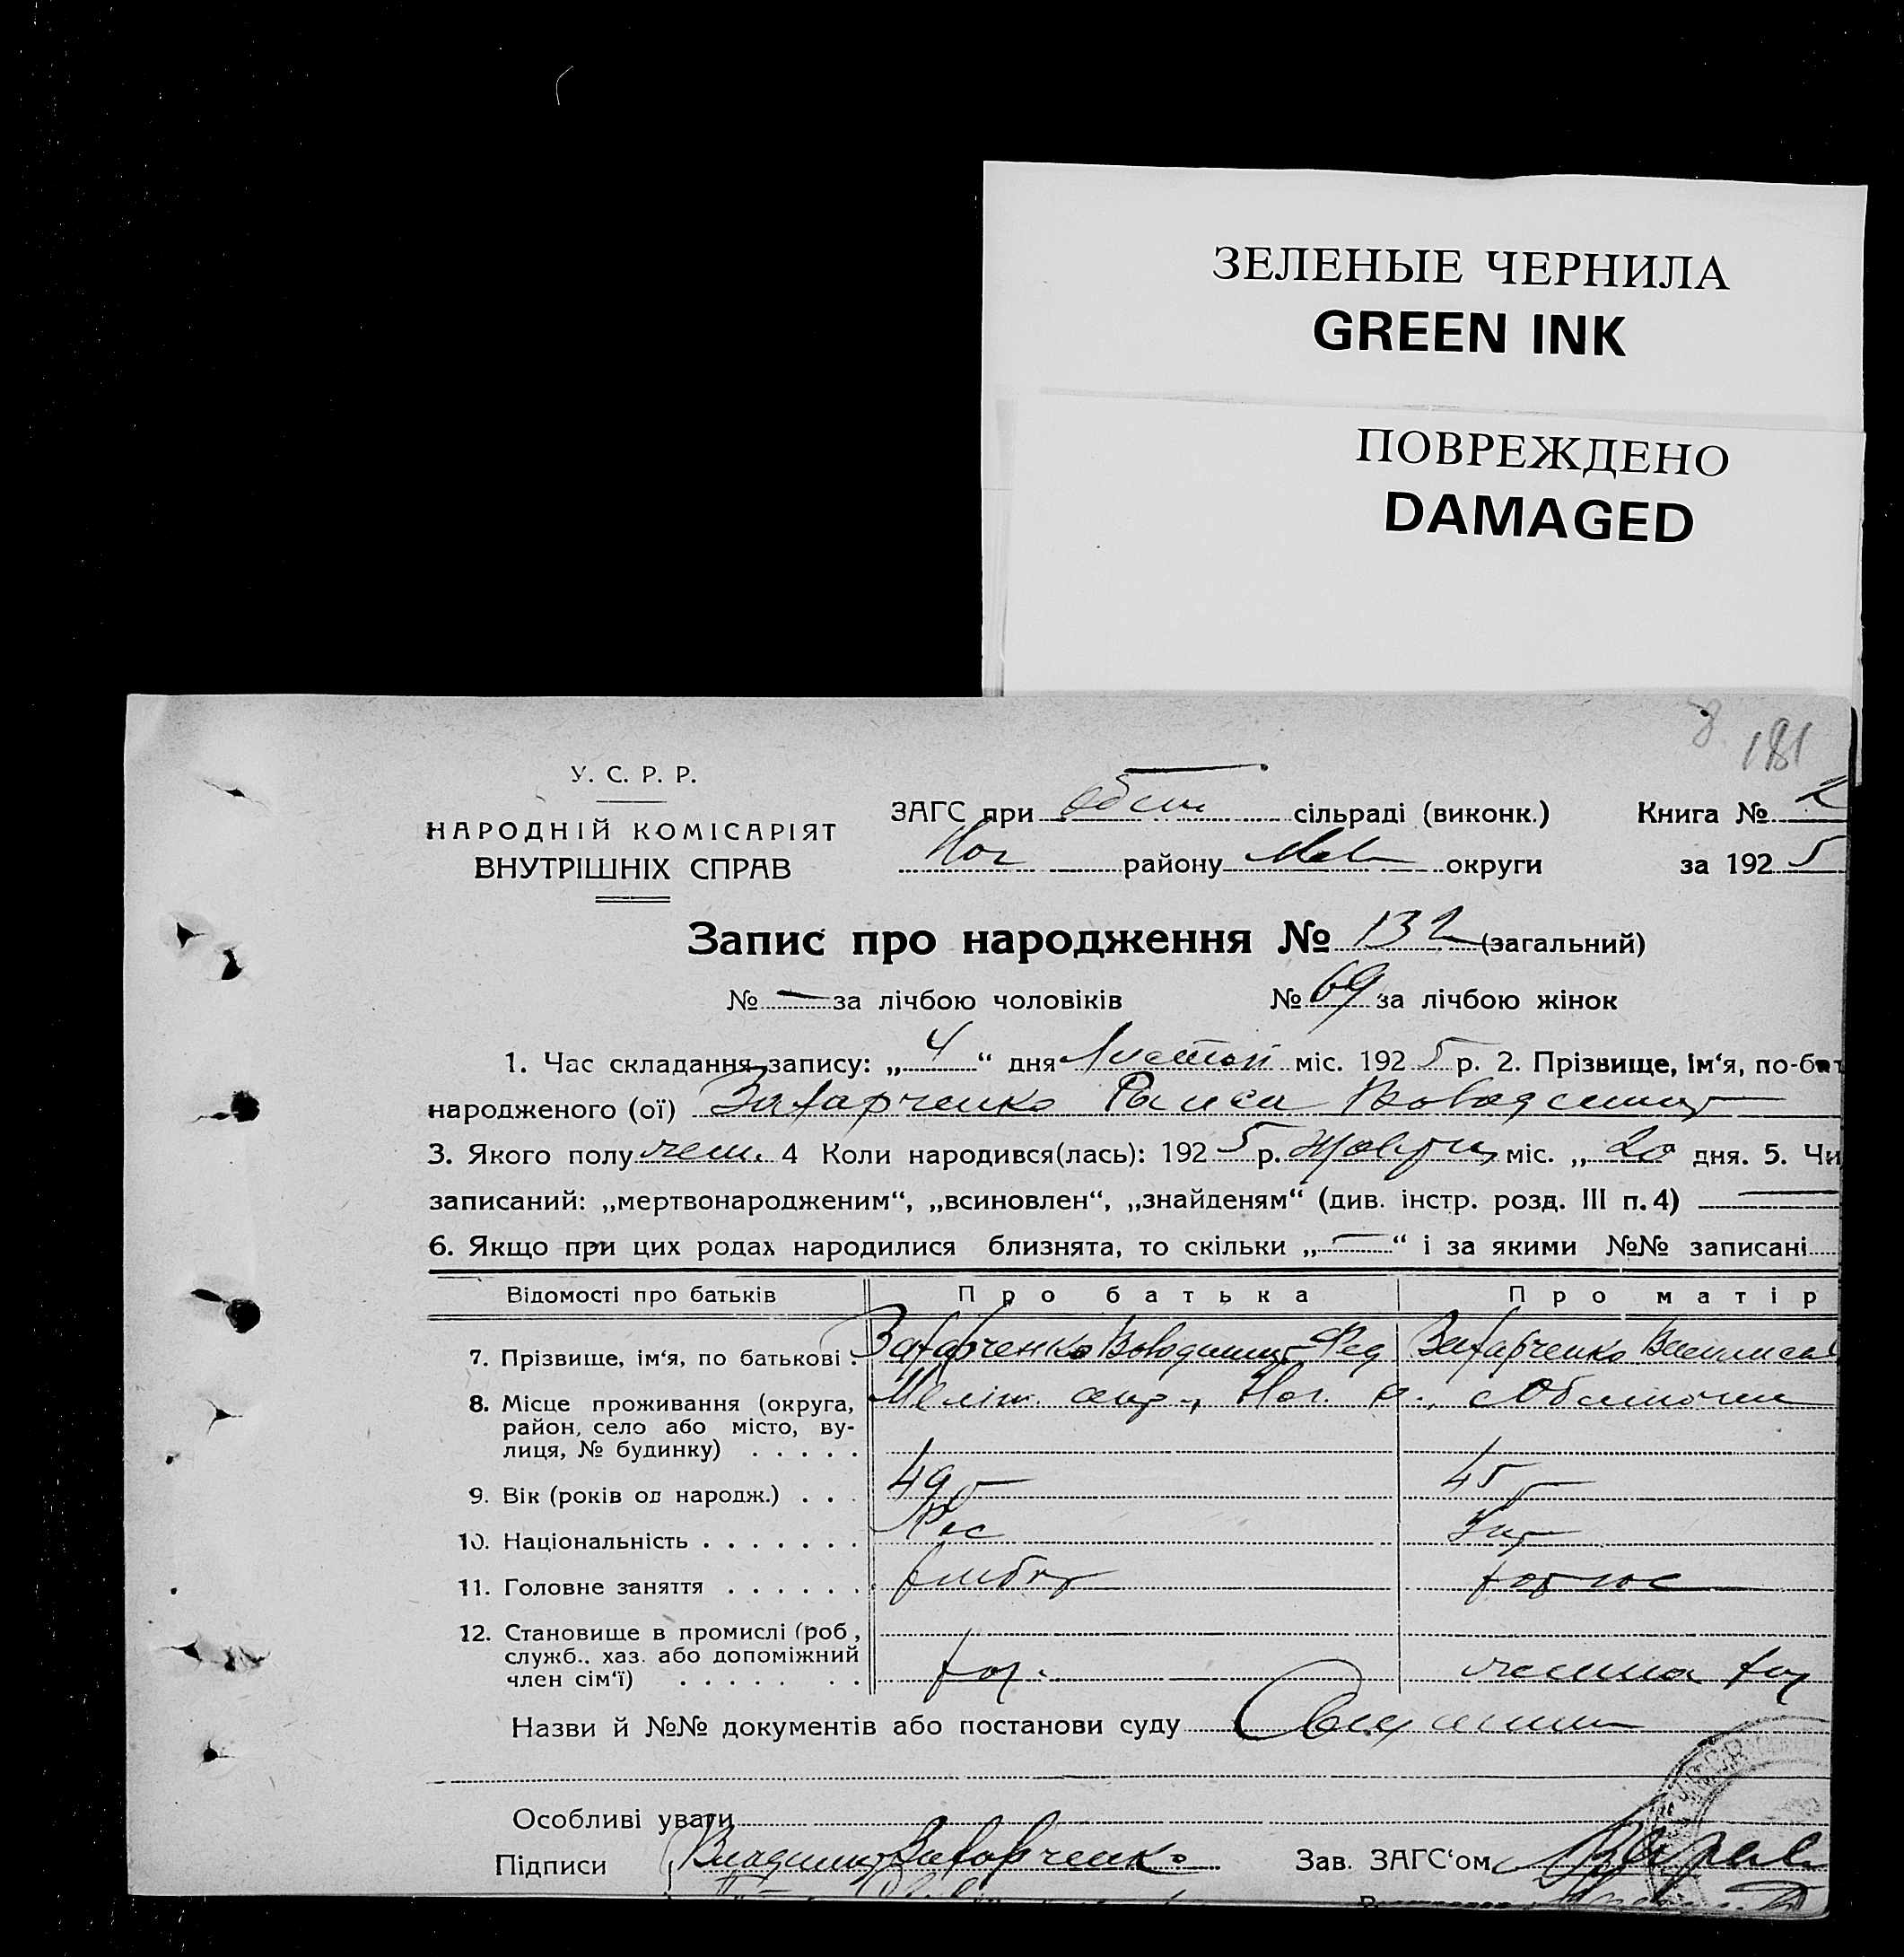 ЗЕЛЕНЫЕ ЧЕРНИЛА
GREEN INK
ПОВРЕЖДЕНО
DAMAGED
8 181
У. С. Р. Р.
НАРОДНІЙ КОМІСАРІЯТ
ВНУТРІШНІХ СПРАВ
ЗАГС при сільраді (виконк.) Книга № 2
Ног району Мел округи за 1925
Запис про народження № 132 (загальний)
№ — за лічбою чоловіків № 69 за лічбою жінок
1. Час складання запису: „ 4 “ дня Листоп міс. 1925 р. 2. Прізвище, ім‘я, по-бат
народженого (ої) Захарченко Раиса Володимир
3. Якого полу жен. 4 Коли народився(лась): 1925 р. Жовтн міс. „ 20 дня. 5. Чи
записаний: „мертвонародженим“, „всиновлен“, „знайденям“ (див. інстр. розд. III п. 4) —
6. Якщо при цих родах народилися близнята, то скільки „ — “ і за якими №№ записані
Відомості про батьків Про батька Про матір
7. Прізвище, ім‘я, по батькові . Захарченко Володимир Фед Захарченко Василиса
8. Місце проживання (округа, Меліт. окр., Ног. р.,
район, село або місто, ву-
лиця, № будинку) . . . . .
9. Вік (років од народж.) . . . 49 45
10. Національність . . . . . . . Рос Укр
11. Головне заняття . . . . . . хлібор
12. Становище в промислі (роб.,
служб., хаз. або допоміжний
член сім‘ї) . . . . . . . хаз.
Назви й №№ документів або постанови суду
Особливі уваги
Підписи Владимир Захарченко Зав. ЗАГС‘ом